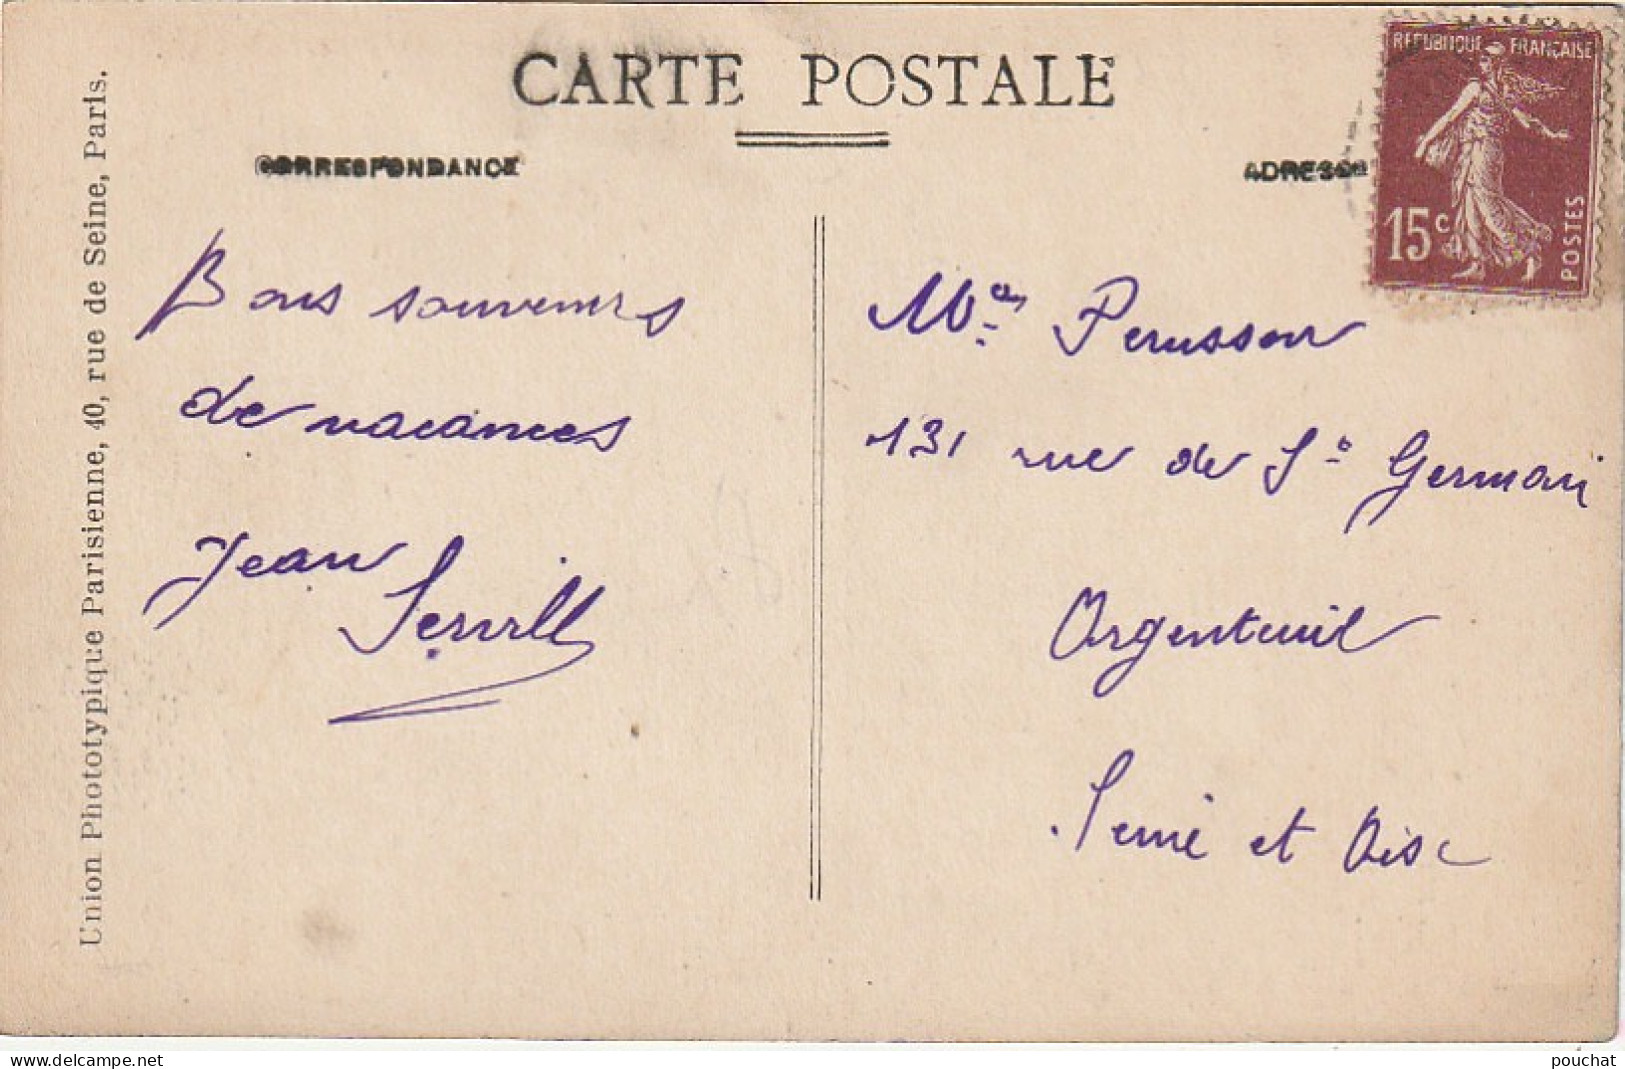 CARTE POSTALE
CORRESPONDANCE
ADRESSE
REPUBLIQUE FRANÇAISE
15c
POSTES
Union Phototypique Parisienne, 40, rue de Seine, Paris.
Bons souvenirs
de vacances
Jean
Servill
Perusson
131 rue de St Germain
Argenteuil
Seine et Oise
www.delcampe.net
pouchat